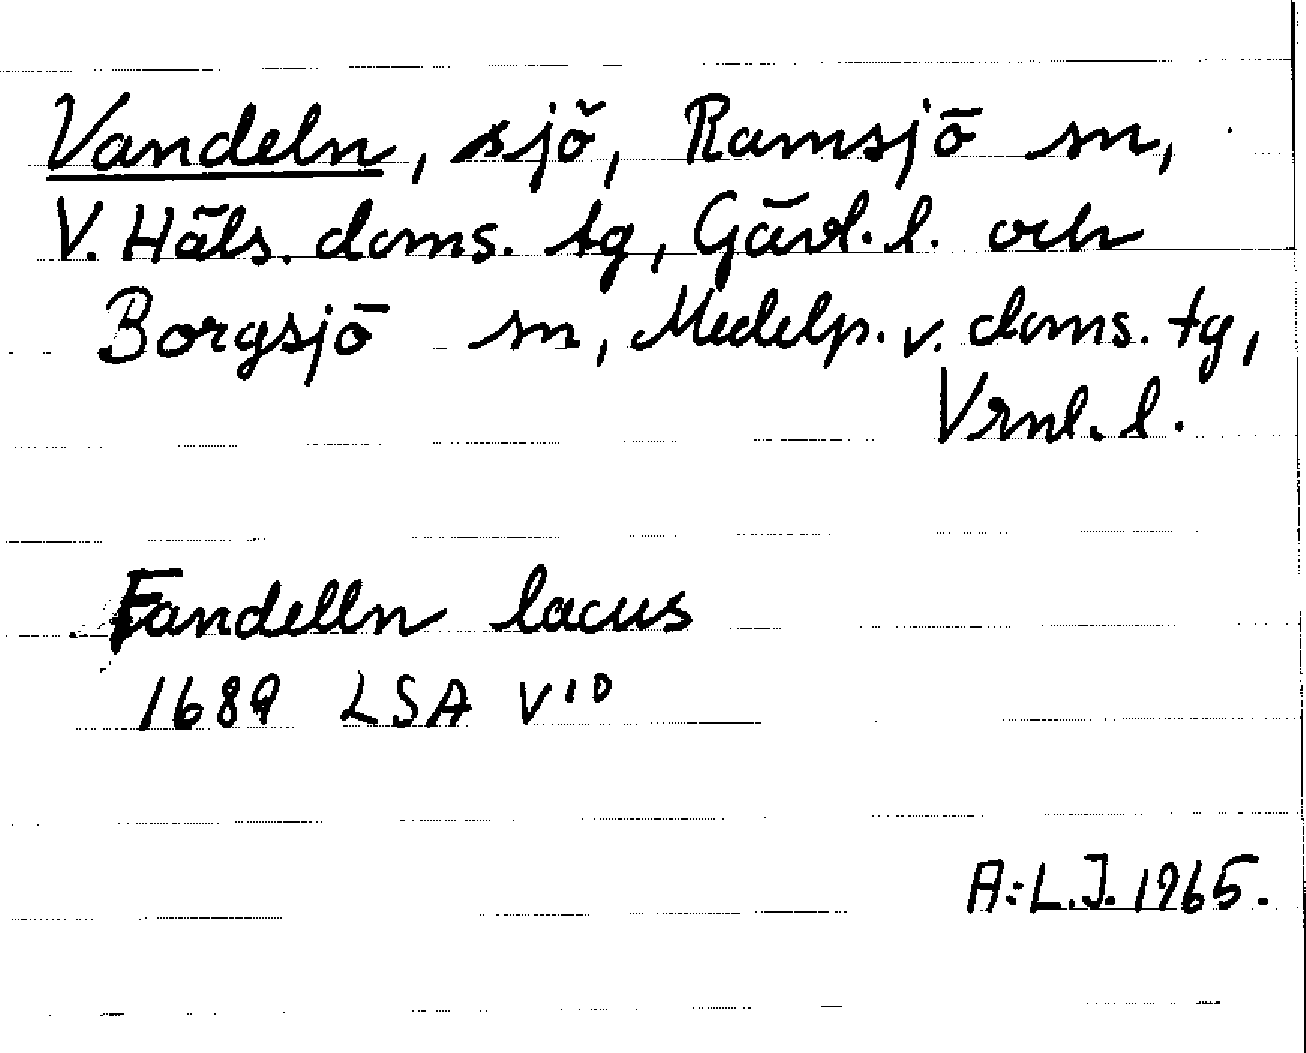 Vandeln, sjö, Ramsjö sn,
V. Häls. doms. tg, Gävl. l. och
Borgsjö sn, Medelp. v. doms. tg,
Vrnl. l.
Fandelln lacus
1689 LSA V¹⁰
A:L.J. 1965.